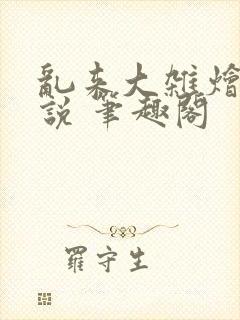 亂来大雜燴
說 筆趣阁
羅守生